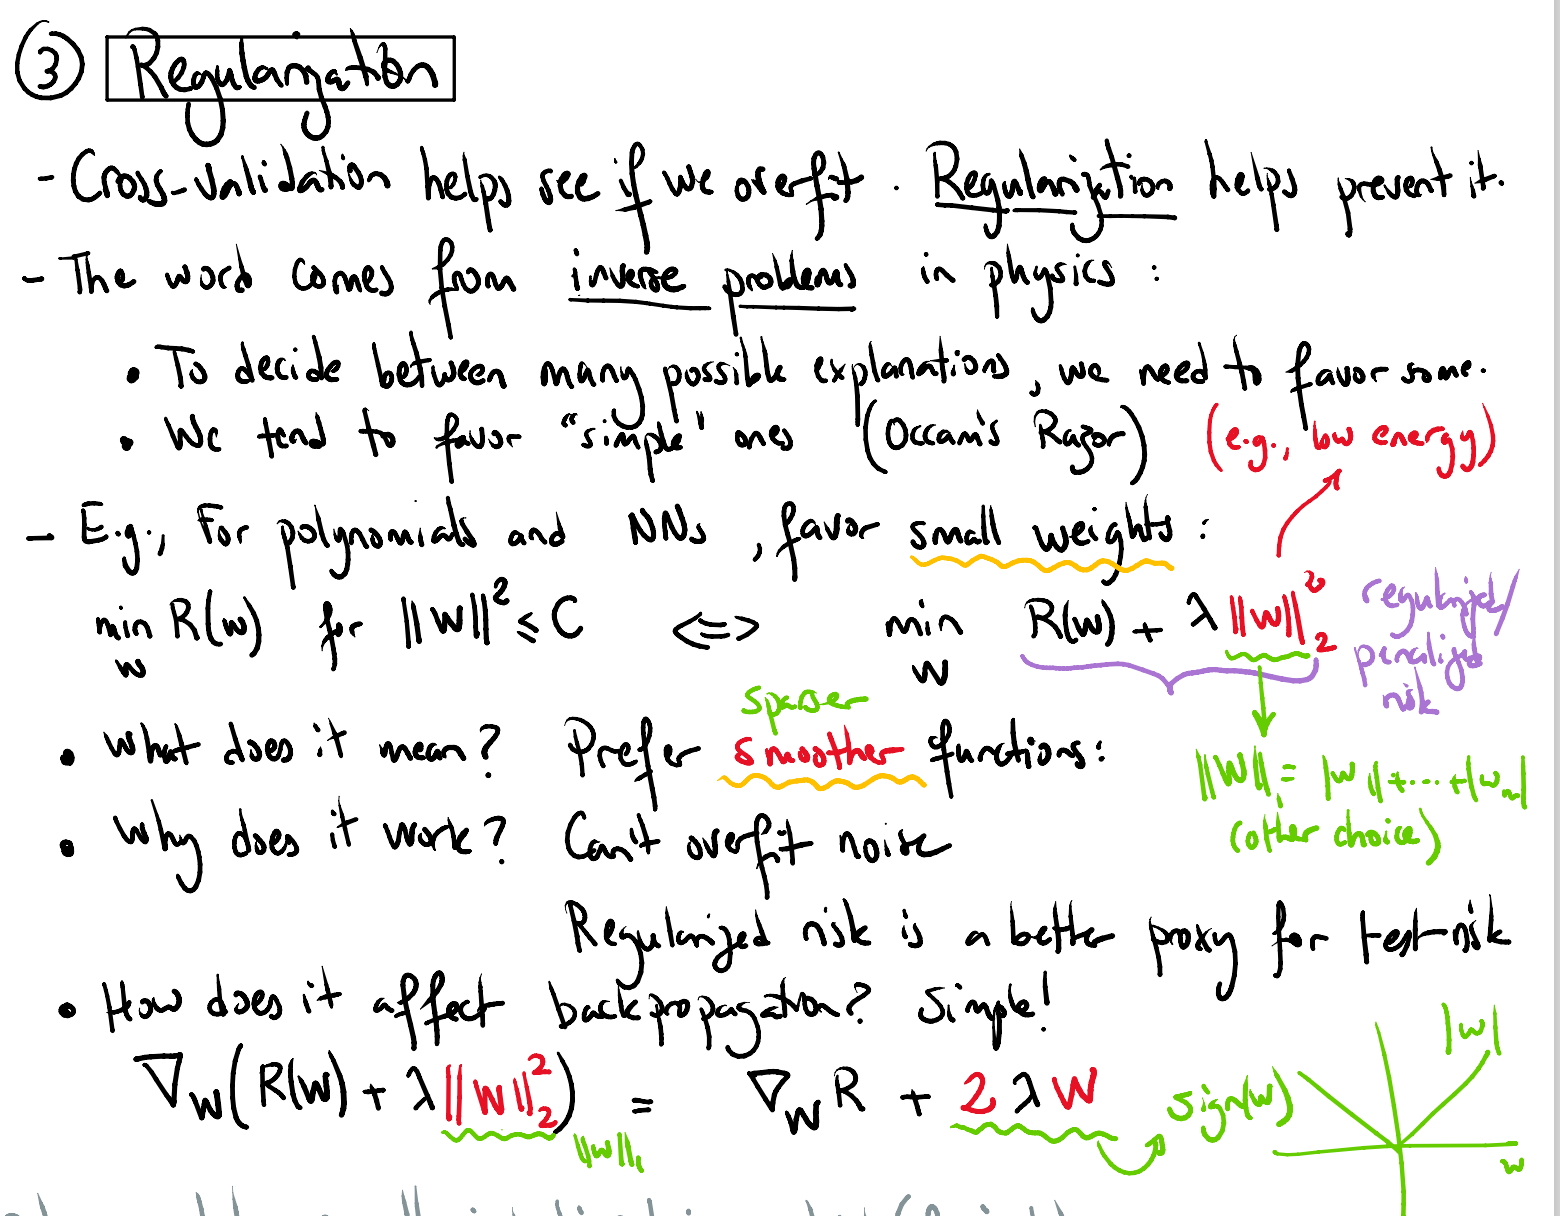 ③ Regularization
- Cross-validation helps see if we overfit. Regularization helps prevent it.
- The word comes from inverse problems in physics:
• To decide between many possible explanations, we need to favor some.
• We tend to favor "simple" ones (Occam's Razor) (e.g., low energy)
- E.g., For polynomials and NNs, favor small weights:
min_w R(w) for ||w||² ≤ C ⟺ min_w R(w) + λ||w||₂² regularized/penalized risk
sparser
• What does it mean? Prefer smoother functions:
||w||₁ = |w₁|+...+|wₙ|
(other choice)
• Why does it work? Can't overfit noise
Regularized risk is a better proxy for test-risk
• How does it affect backpropagation? Simple!
∇_w(R(w) + λ||w||₂²) = ∇_w R + 2λw
||w||₁ sign(w) |w| w